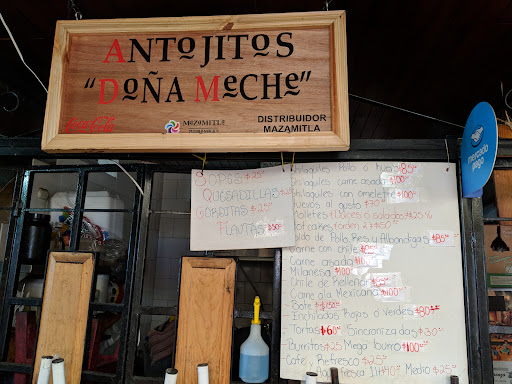 ANTOJITOS
"DOÑA MECHE"
Coca-Cola
MAZAMITLA
DISTRIBUIDOR
MAZAMITLA
mercado
pago
SOPES $25
QUESADILLAS
GORDITAS $25
FLAUTAS $50
Chilaquiles Pollo o huevo $85
chilaquiles carne asada $100
chilaquiles con omelette $100
Huevos al gusto $70
Molletes (Dulces o salados) $25
Hot cakes (orden 2) $50
Caldo de Pollo, Res y Albondigas $80
Carne con chile
Carne asada
Milanesa $100
Chile de Rellenar
Carne ala Mexicana $100
Bote
Enchiladas Rojas o verdes $80
Tortas $60 Sincronizadas $30
Burritos $25 Mega burro $100
Cafe, Refresco $25
fresca 1 Lt $40 Medio $25